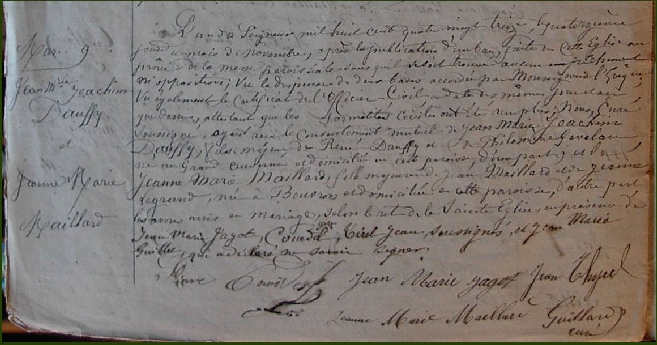 L'an du Seigneur mil huit cent quatre vingt treize, le quatorzième
Mar. 9 jour du mois de Novembre, après la publication d'un ban faite en cette Eglise au
prône de la messe paroissiale sans qu'il se soit trouvé aucun empêchement
Jean Mie Joachim ni opposition; Vu la dispense de deux bans accordée par Monseigneur l'Evêque
Dauffy Vu également le certificat de l'Officier Civil en date des mêmes
jour attestant que les formalités civiles ont été remplies; Nous, Curé
et soussigné, ayant reçu le consentement mutuel de Jean Marie Joachim
Dauffy, fils majeur de René Dauffy et de Philomène
né au Grand et domicilié en cette paroisse, d'une part; et de
Jeanne Marie Jeanne Marie Maillard, fille mineure de Jean Maillard et de Jeanne
Legrand, née à Bouvron et domiciliée en cette paroisse, d'autre part
Maillard les avons unis en mariage, selon le rit de la Sainte Eglise, en présence de
Jean Marie Jagot, Jean, soussignés, et Jean Marie
Guillet, qui a déclaré ne savoir signer.
Jean Marie Jagot Jean
Jeanne Marie Maillard Guillard
curé